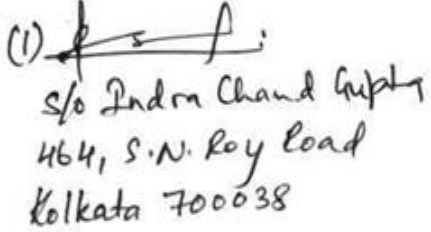 (1)
S/o Indra Chand Gupta
464, S.N. Roy Road
Kolkata 700038